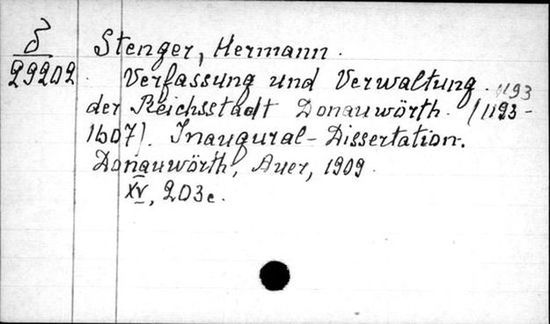 δ
29202
Stenger, Hermann.
Verfassung und Verwaltung 1193
der Reichsstadt Donauwörth. (1193-
1607). Inaugural-Dissertation.
Donauwörth, Auer, 1909.
XV, 203c.